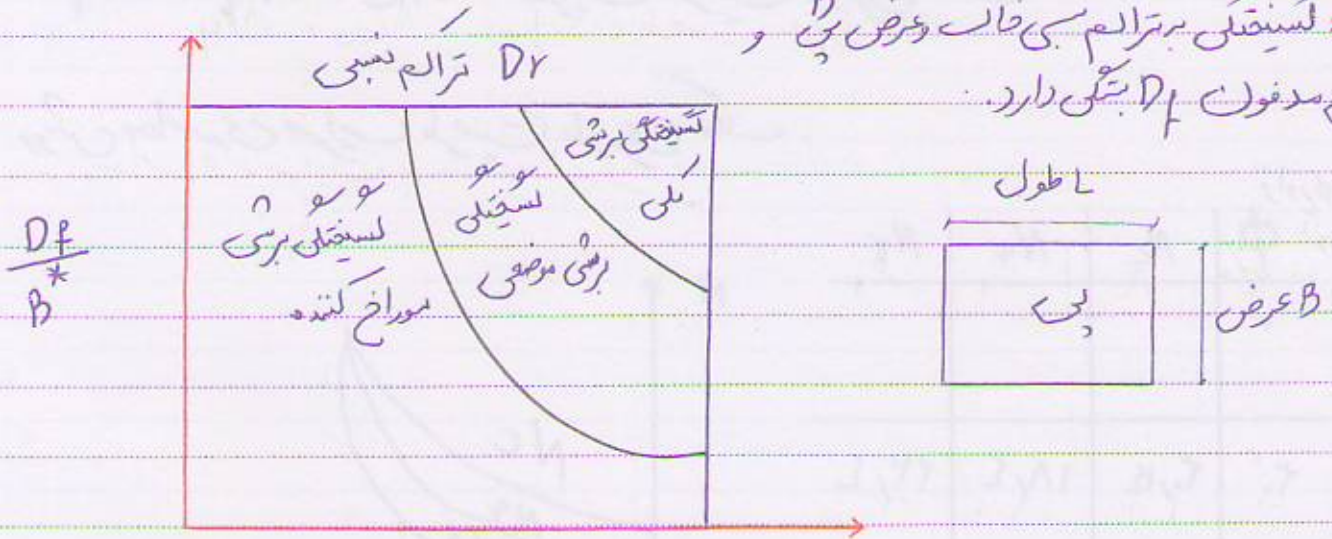 گسیختگی به تراکم نسبی خاک و عرض پی B و
مدفون Df بستگی دارد.
Dr تراکم نسبی
گسیختگی برشی
کلی
گسیختگی
برشی موضعی
گسیختگی برشی
سوراخ کننده
Df
B*
L طول
پی
B عرض